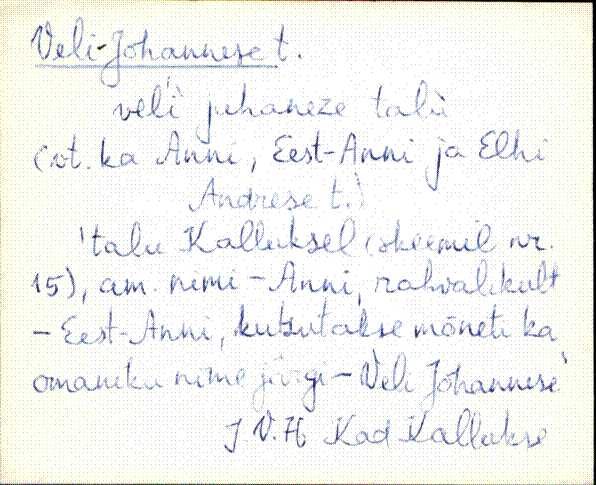 Veli-Johannese t.
veli juhaneze talu
(vt. ka Anni, Eest-Anni ja Elhi
Andrese t.)
'talu Kalluksel (skeemil nr.
15), am. nimi - Anni, rahvalikult
- Eest-Anni, kutsutakse mõneti ka
omaniku nime järgi - Veli Johannese'
J. V. H Kad Kallukse